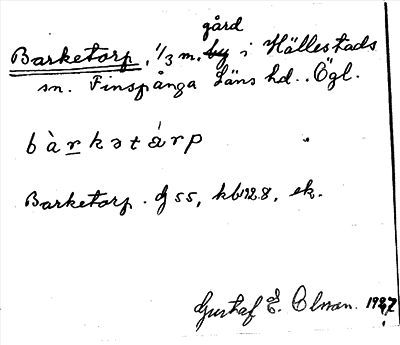 gård
Barketorp, 1/3 m. by i Hällestads
sn. Finspånga Läns hd.. Ögl.
bàrkətárp
Barketorp. G 55, kb 128, ek.
Gustaf E. Olsson. 1927.